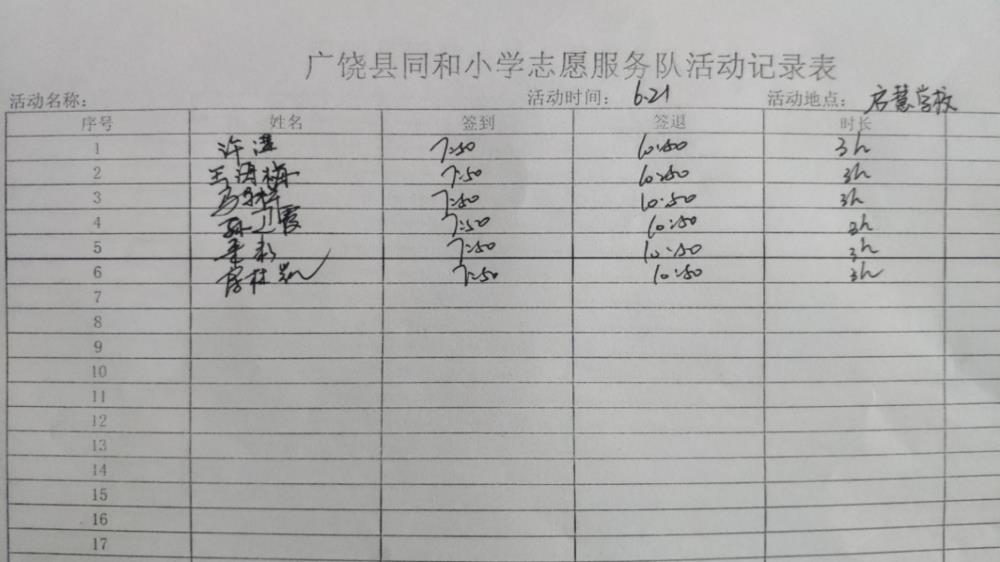 广饶县同和小学志愿服务队活动记录表
活动名称: 活动时间: 6.21 活动地点: 启慧学校
序号 姓名 签到 签退 时长
1 许 7:50 10:50 3h
2 王海梅 7:50 10:50 3h
3 7:50 10:50 3h
4 孙卫霞 7:50 10:50 3h
5 7:50 10:50 3h
6 7:50 10:50 3h
7
8
9
10
11
12
13
14
15
16
17